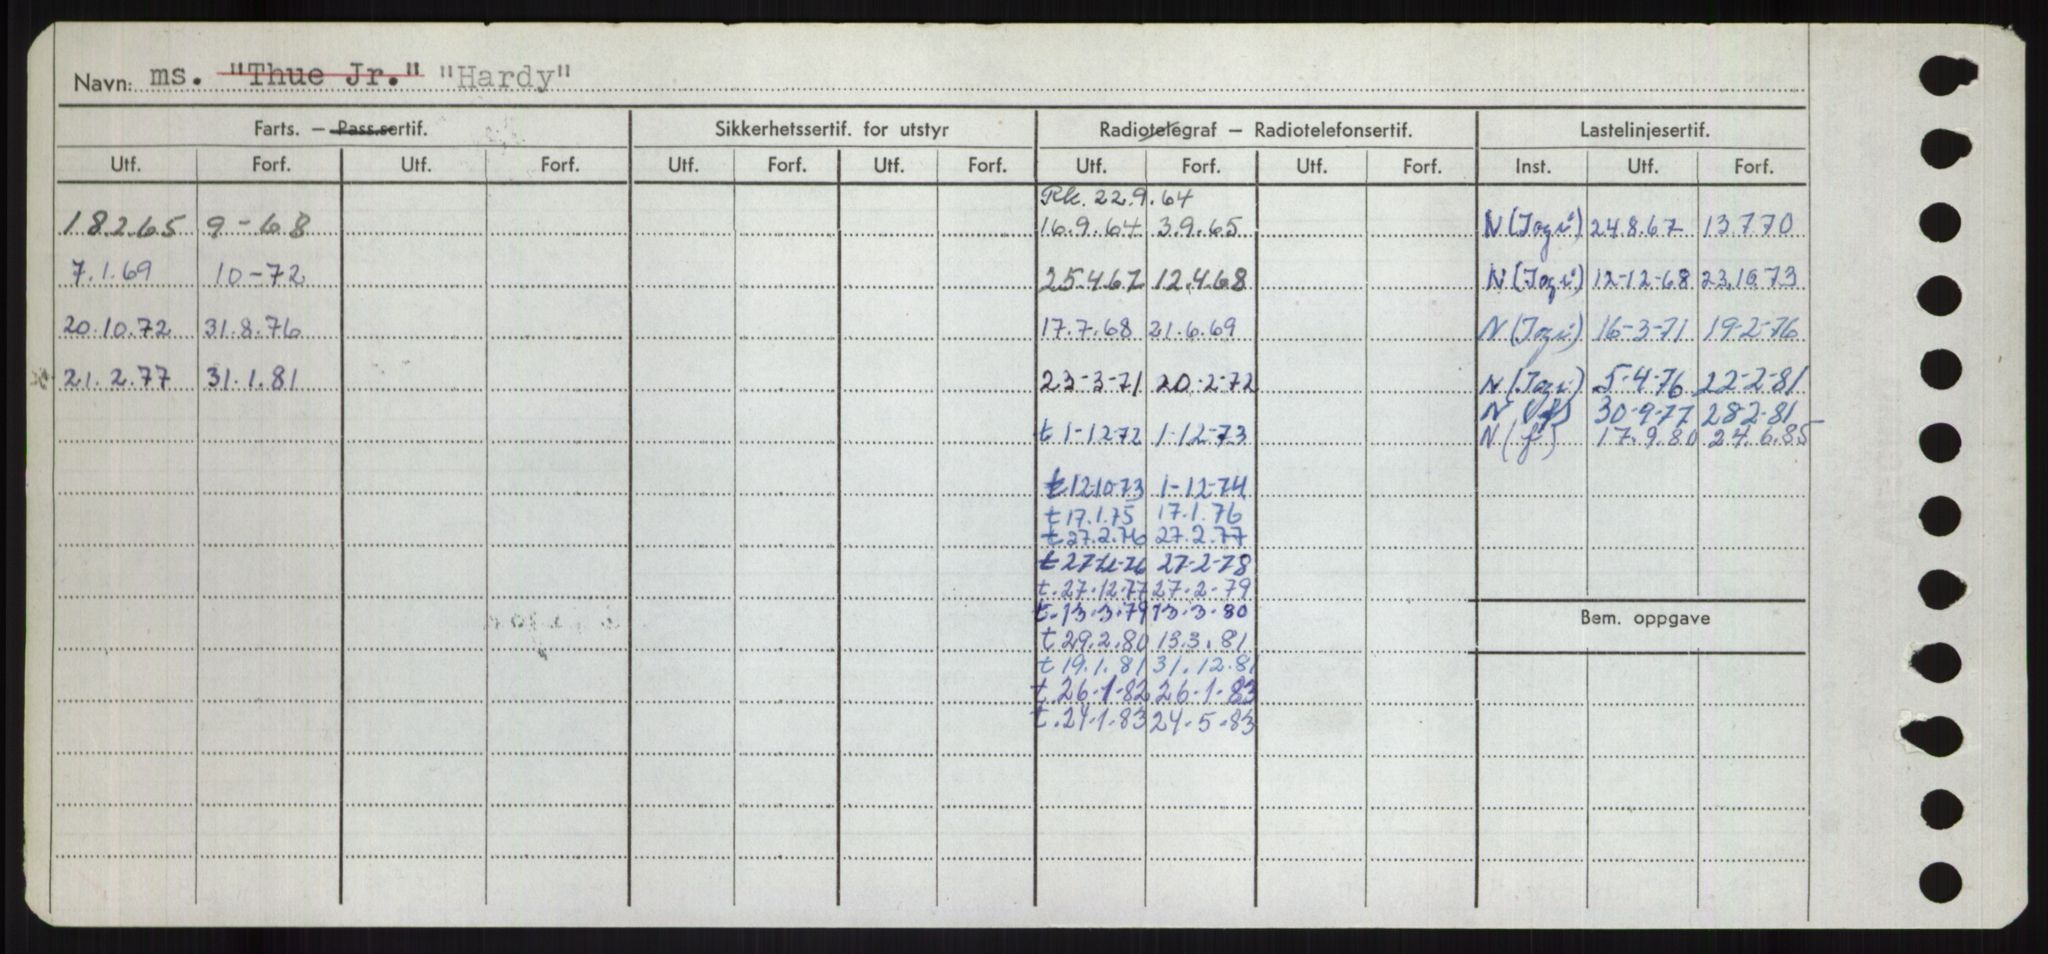 Navn: ms. "Thue Jr." "Hardy"
Farts. — Pass.sertif. Sikkerhetssertif. for utstyr Radiotelegraf — Radiotelefonsertif. Lastelinjesertif.
Utf. Forf. Utf. Forf. Utf. Forf. Utf. Forf. Utf. Forf. Utf. Forf. Inst. Utf. Forf.
Rk. 22.9.64
18.2.65 9-68 16.9.64 3.9.65 N 24.8.67 13.7.70
7.1.69 10-72 25.4.67 12.4.68 N 12-12-68 23.10.73
20.10.72 31.8.76 17.7.68 21.6.69 N 16-3-71 19-2-76
21.2.77 31.1.81 23-3-71 20-2-72 N 5-4-76 22-2-81
N 30-9-77 28.2-81
t 1-12-72 1-12-73 N 17.9.80 24.6.85
t 12-10-73 1-12-74
t 17.1.75 17.1.76
t 27.2.76 27.2.77
t 27-2-78
t. 27-12-77 27-2-79
t. 13-3-79 13-3-80
t 29.2.80 13.3.81
t 19.1.81 31.12.81
t. 26-1-82 26-1-83
t. 24-1-83 24-5-83
Bem. oppgave